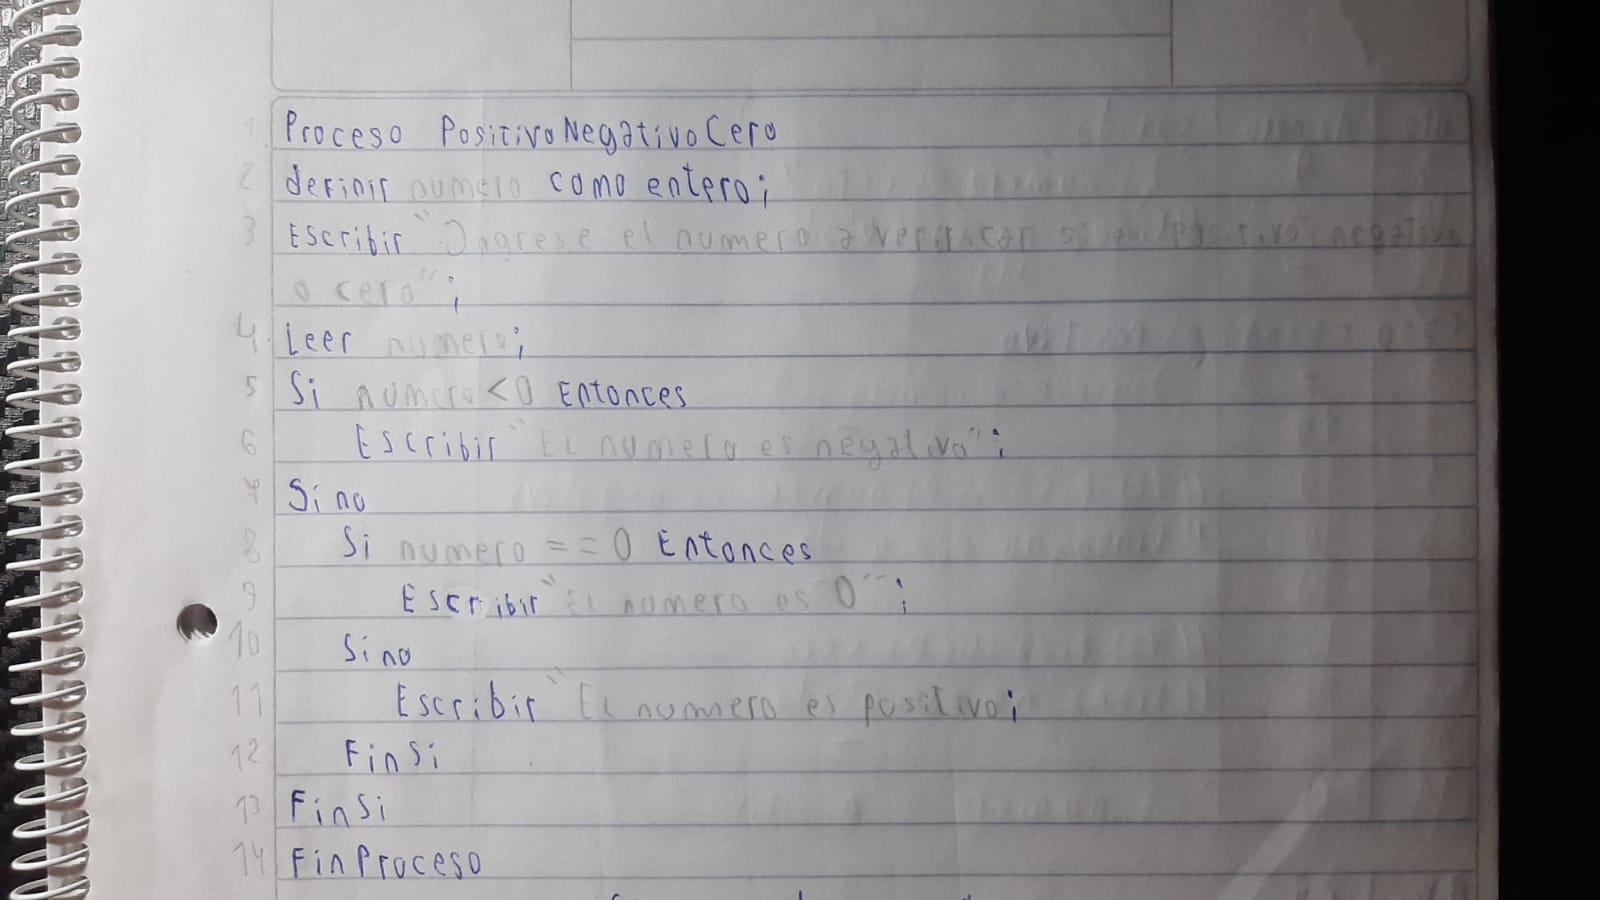 1 Proceso PositivoNegativoCero
2 definir numero como entero;
3 Escribir "Ingrese el numero a verificar si es positivo negativo
o cero";
4. Leer numero;
5 Si numero<0 Entonces
6 Escribir "El numero es negativo";
7 Sino
8 Si numero ==0 Entonces
9 Escribir "El numero es 0";
10 Sino
11 Escribir "El numero es positivo;
12 FinSi
13 FinSi
14 FinProceso